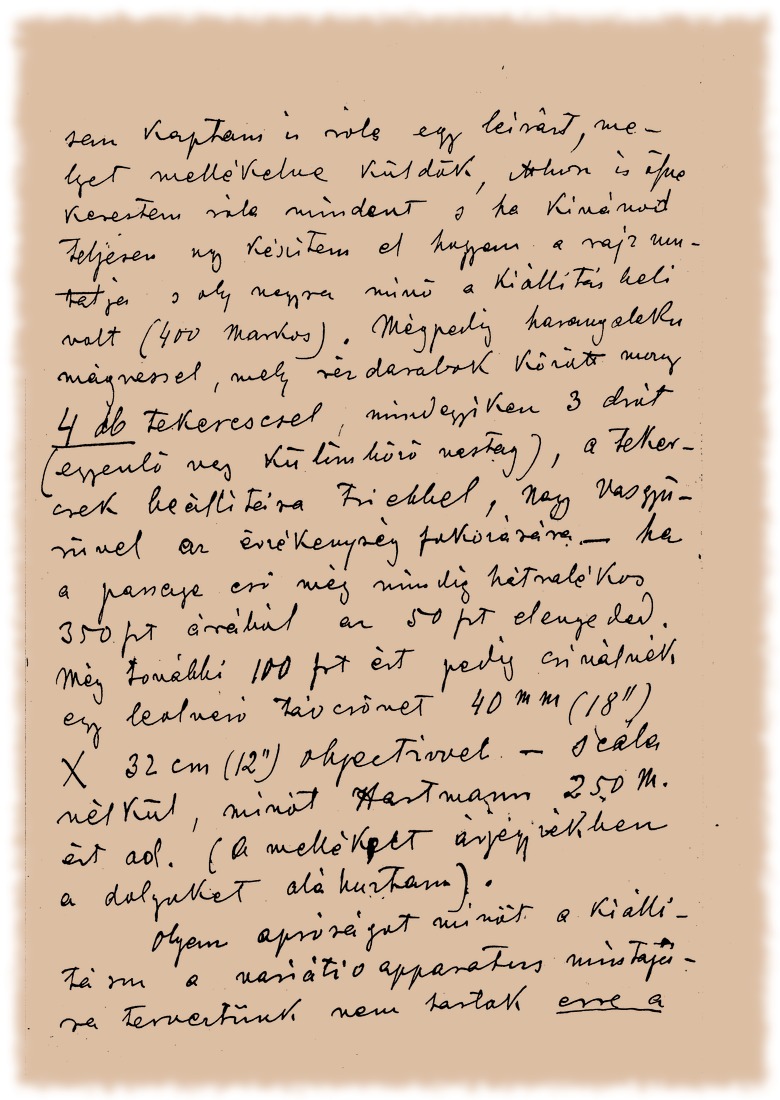 sem kaptam is róla egy leírást, me-
lyet mellékelve küldök, is
kerestem róla mindent s ha kivánod
teljesen ugy készitem el hogyan a rajz mu-
tatja s oly nagyra minő a kiállitás beli
volt (400 Markos). Mégpedig harangalaku
mágnessel, mely réz darabok között mozg
4 db tekercscsel, mindegyiken 3 drót
(egyenlő vagy külömböző vastag), a teker-
csek beállitására Triebbel, nagy vasgyü-
rüvel az érzékenység fokozására — ha
a passage cső még mindig hátralékos
350 frt árából az 50 frt elengeded.
Még további 100 frt ért pedig csinálnék
egy leolvasó távcsövet 40 mm (18")
X 32 cm (12") objectivvel — scala
nélkül, minőt Hartmann 250 M.
ért ad. (A mellékelt árjegyzékben
a dolgokat aláhuztam).
Olyan apróságot minőt a kiálli-
tásra a variátio apparatus mintájá-
ra terveztünk nem tartok erre a